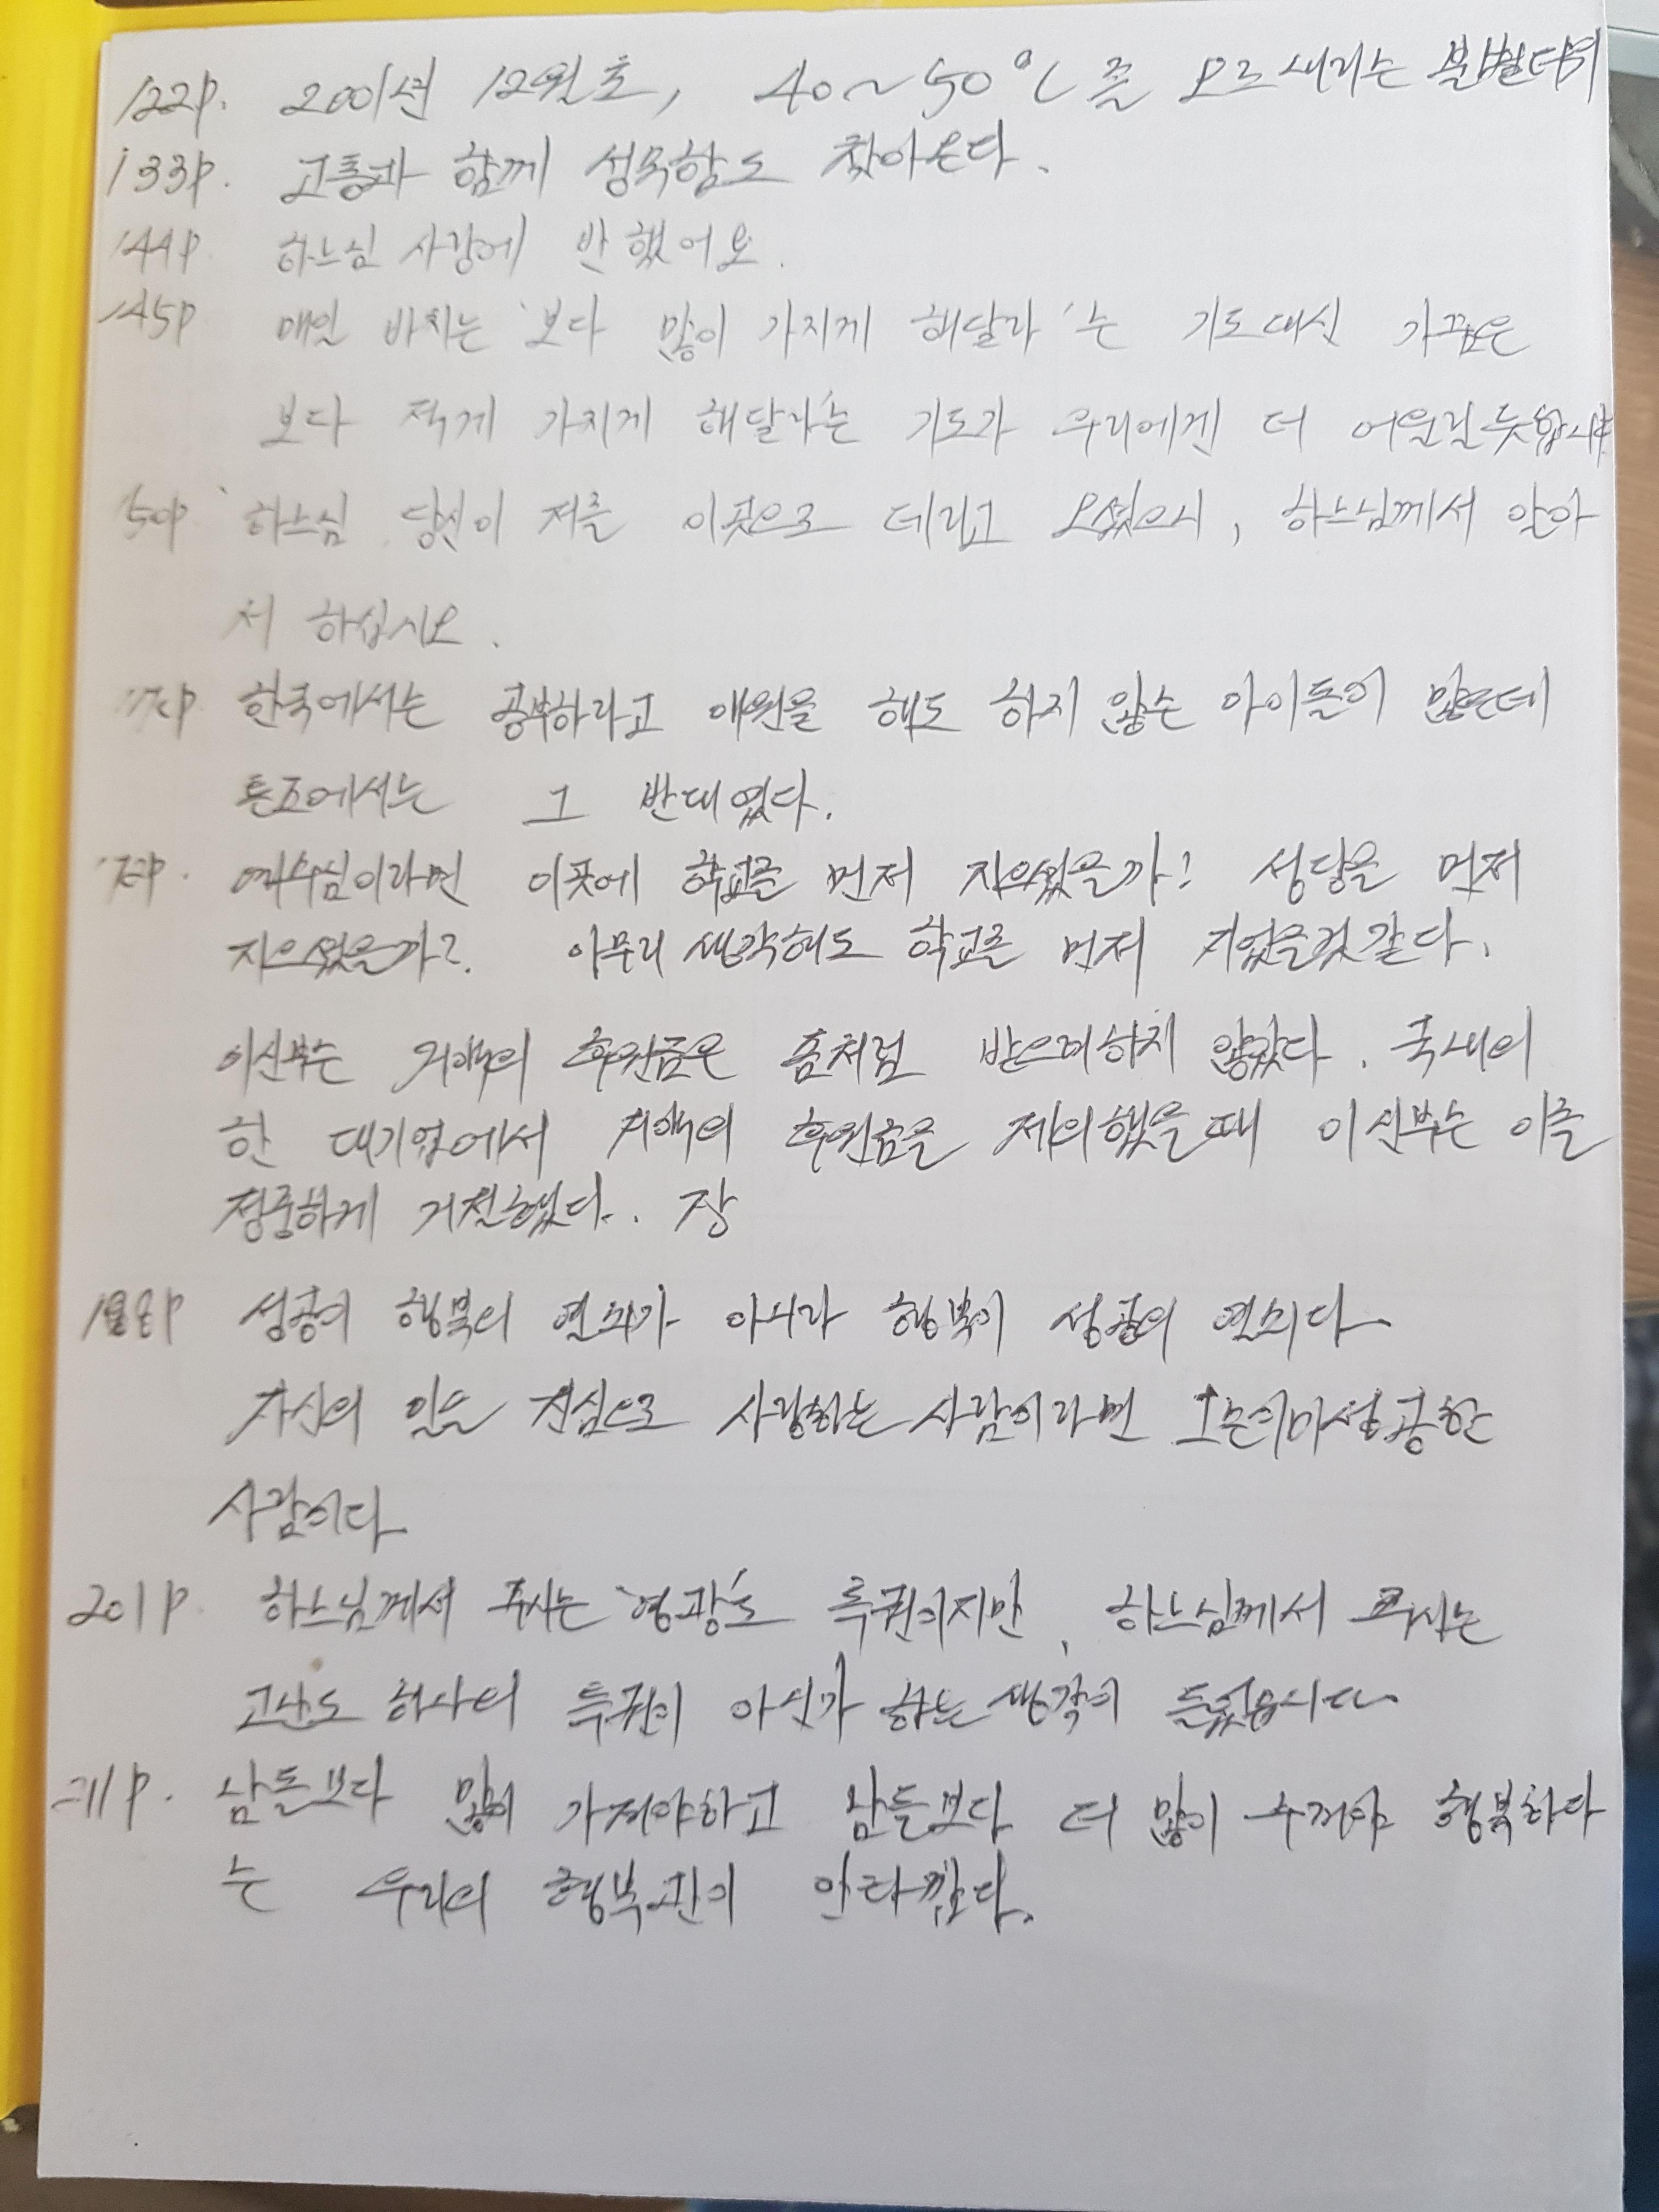 122p. 2001년 12월초, 40~50°C를 오르내리는 불볕더위
133p. 고통과 함께 성묵함도 찾아온다.
144p. 하느님 사랑에 반했어요.
145p 매일 바치는 '보다 많이 가지게 해달라'는 기도대신 가끔은
보다 적게 가지게 해달라'는 기도가 우리에겐 더 어울릴듯합니다.
150p 하느님 당신이 저를 이곳으로 데리고 오셨으니, 하느님께서 알아
서 하십시오.
한국에서는 공부하라고 애원을 해도 하지 않는 아이들이 많은데
톤즈에서는 그 반대였다.
예수님이라면 이곳에 학교를 먼저 지으셨을까? 성당을 먼저
지으셨을까?. 아무리 생각해도 학교를 먼저 지었을것 같다.
이신부는 거액의 후원금은 좀처럼 받으려하지 않았다. 국내의
한 대기업에서 거액의 후원금을 제의했을 때 이신부는 이를
정중하게 거절했다. 장
성공이 행복의 열쇠가 아니라 행복이 성공의 열쇠다
자신의 일을 진심으로 사랑하는 사람이라면 성공한
사람이다
201p 하느님께서 주시는 '영광'도 특권이지만, 하느님께서 주시는
고난도 하나의 특권이 아닌가 하는 생각이 들었습니다
211p. 남들보다 많이 가져야하고 남들보다 더 많이 누려야 행복하다
는 우리의 행복관이 안타깝다.